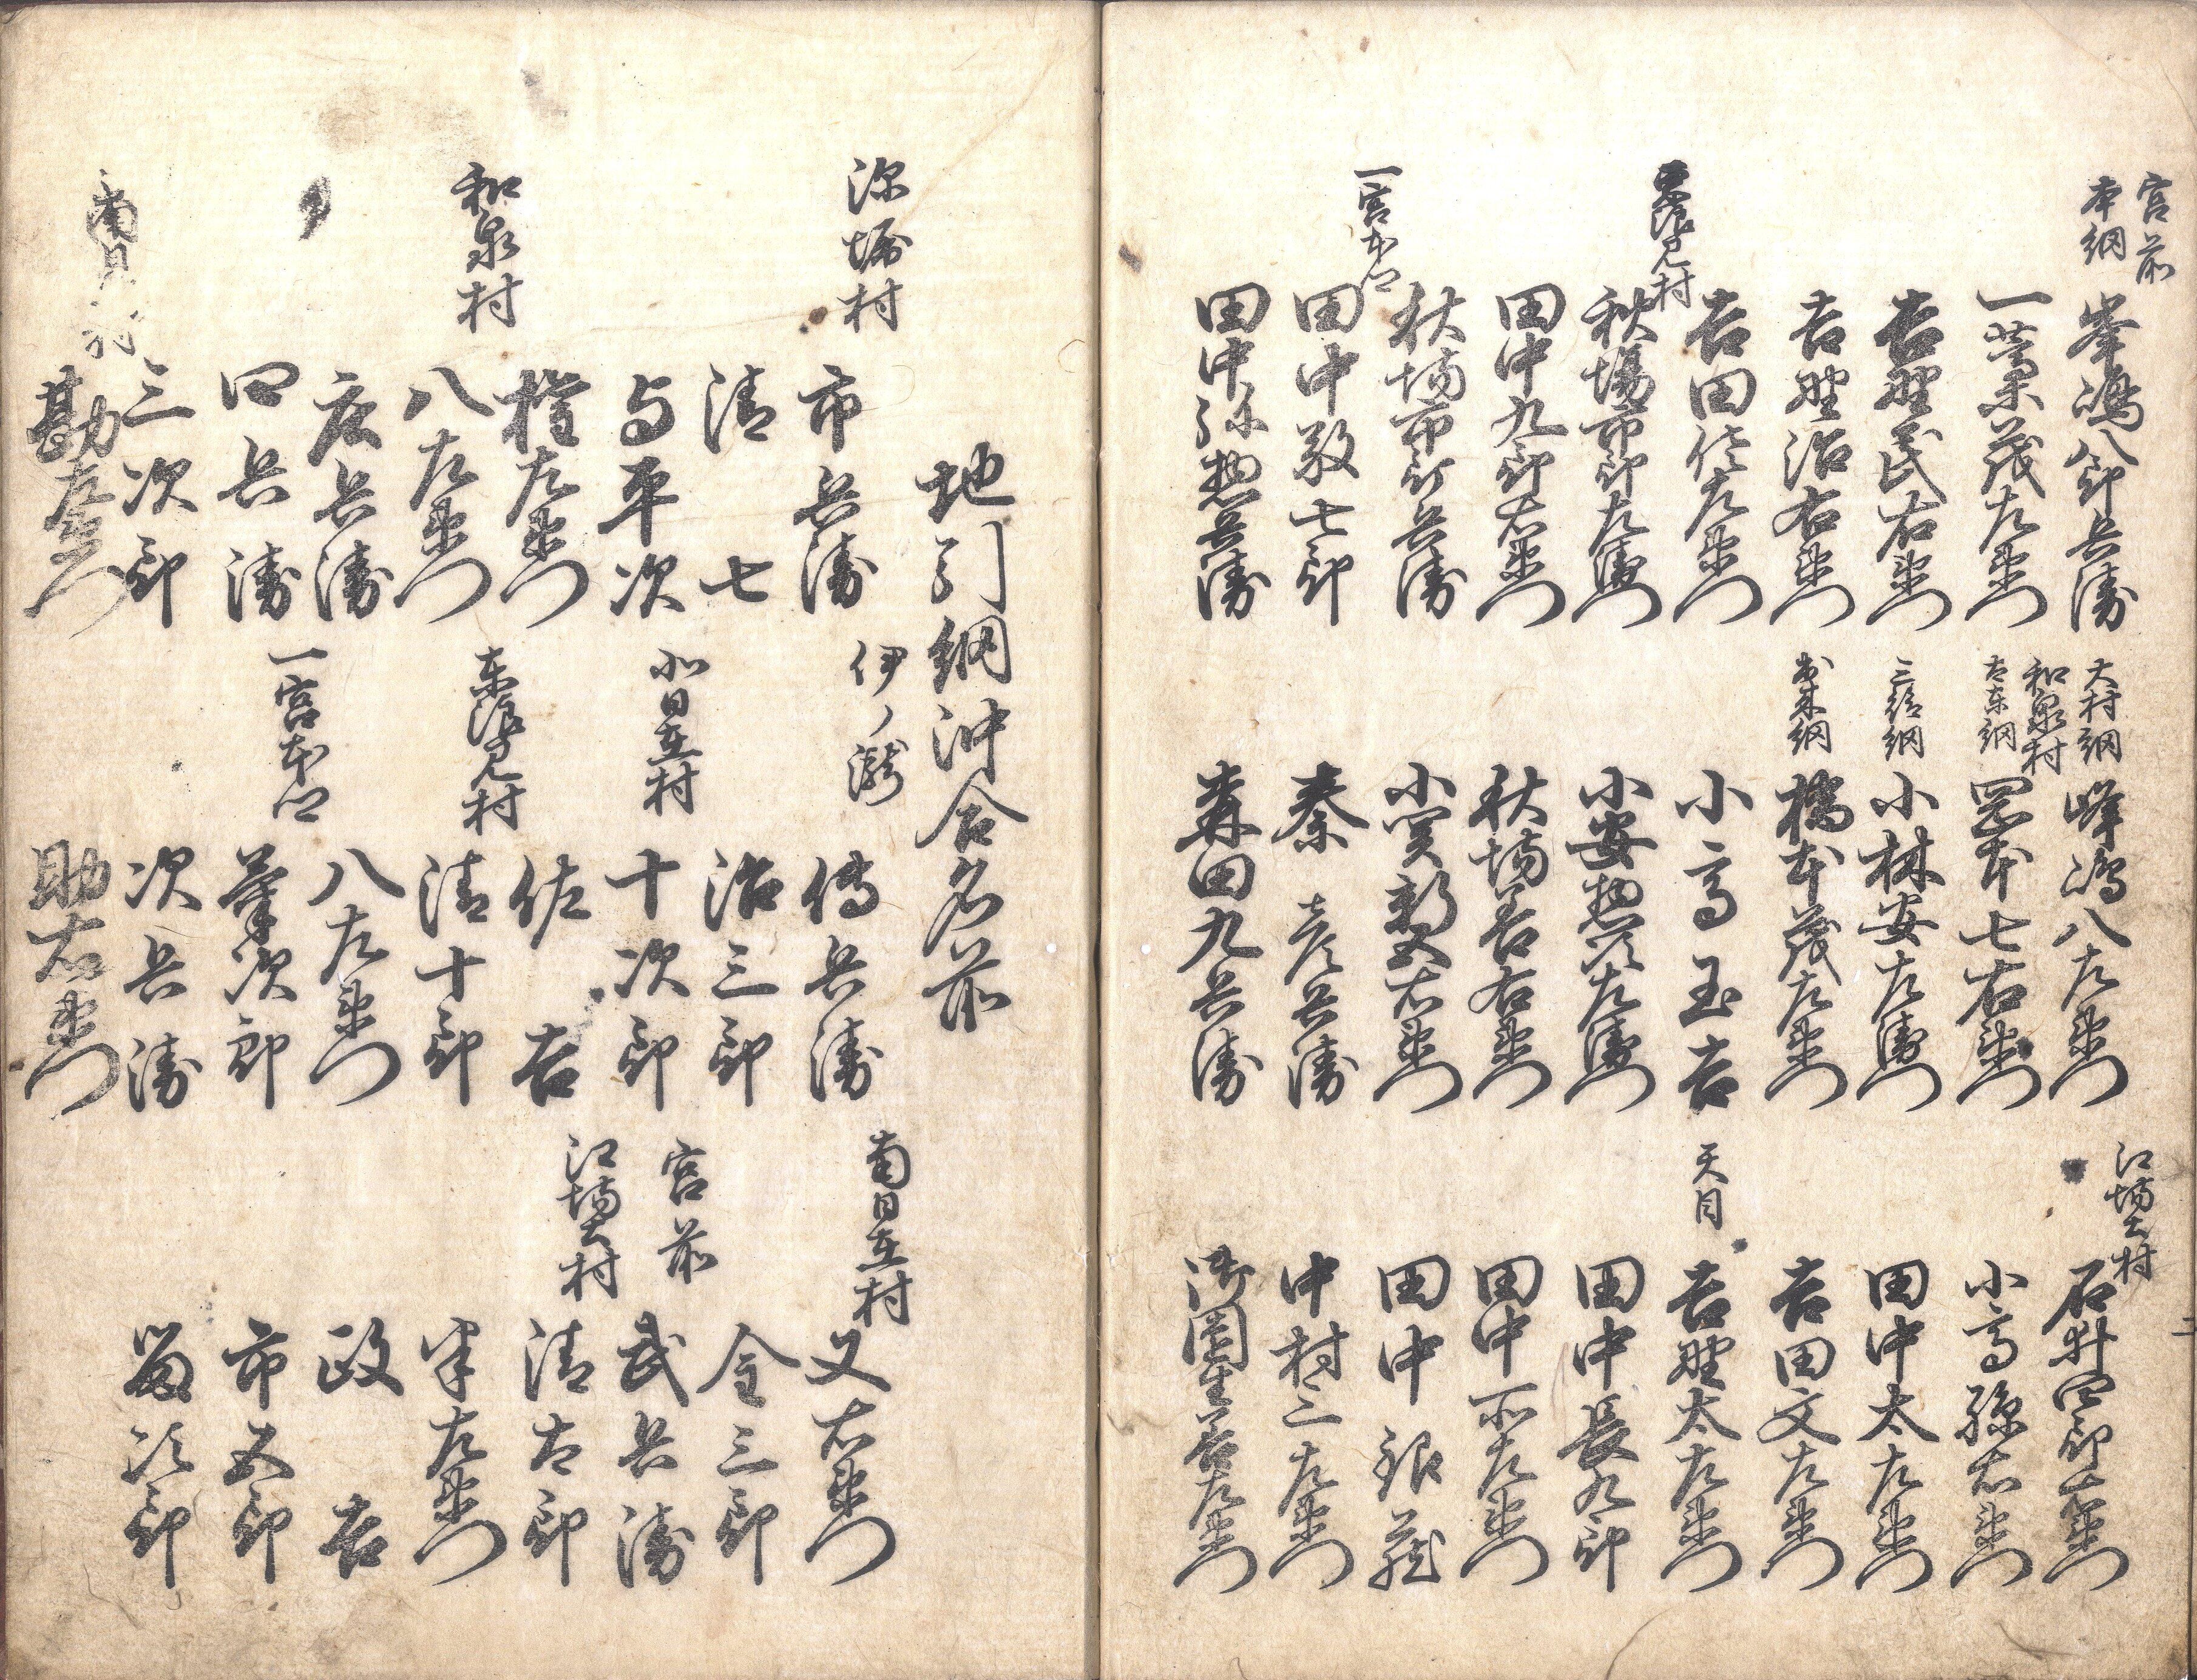 宮前
本網
峯嶋八郎兵衛
一葉茂左衛門
吉野民右衛門
吉野治右衛門
吉田佐左衛門
東浪見村
秋場市郎左衛門
田中九郎右衛門
秋場市郎兵衛
一宮本口
田中敬七郎
田中弥惣兵衛
大村網
峰嶋八左衛門
和泉村
太東網
岡本七右衛門
三給網
小林安左衛門
橋本茂左衛門
小高玉吉
小安惣次左衛門
秋場善右衛門
小関新五右衛門
秦彦兵衛
森田九兵衛
江場土村
石井四郎左衛門
小高孫右衛門
田中太左衛門
吉田文左衛門
天月
吉野太左衛門
田中長九郎
田中所左衛門
田中銀蔵
中村三左衛門
御園生善左衛門
二
地引網沖合名前
深堀村
市兵衛
清七
与平次
和泉村
権左衛門
八左衛門
庄兵衛
四兵衛
三次郎
勘左衛門
伊ノ瀧
傳兵衛
治三郎
北日在村
十次郎
佐吉
東浪見村
清十郎
八左衛門
一宮本口
次兵衛
助右衛門
南日在村
又右衛門
金三郎
宮前
武兵衛
江場土村
清太郎
半左衛門
政吉
市五郎
留次郎